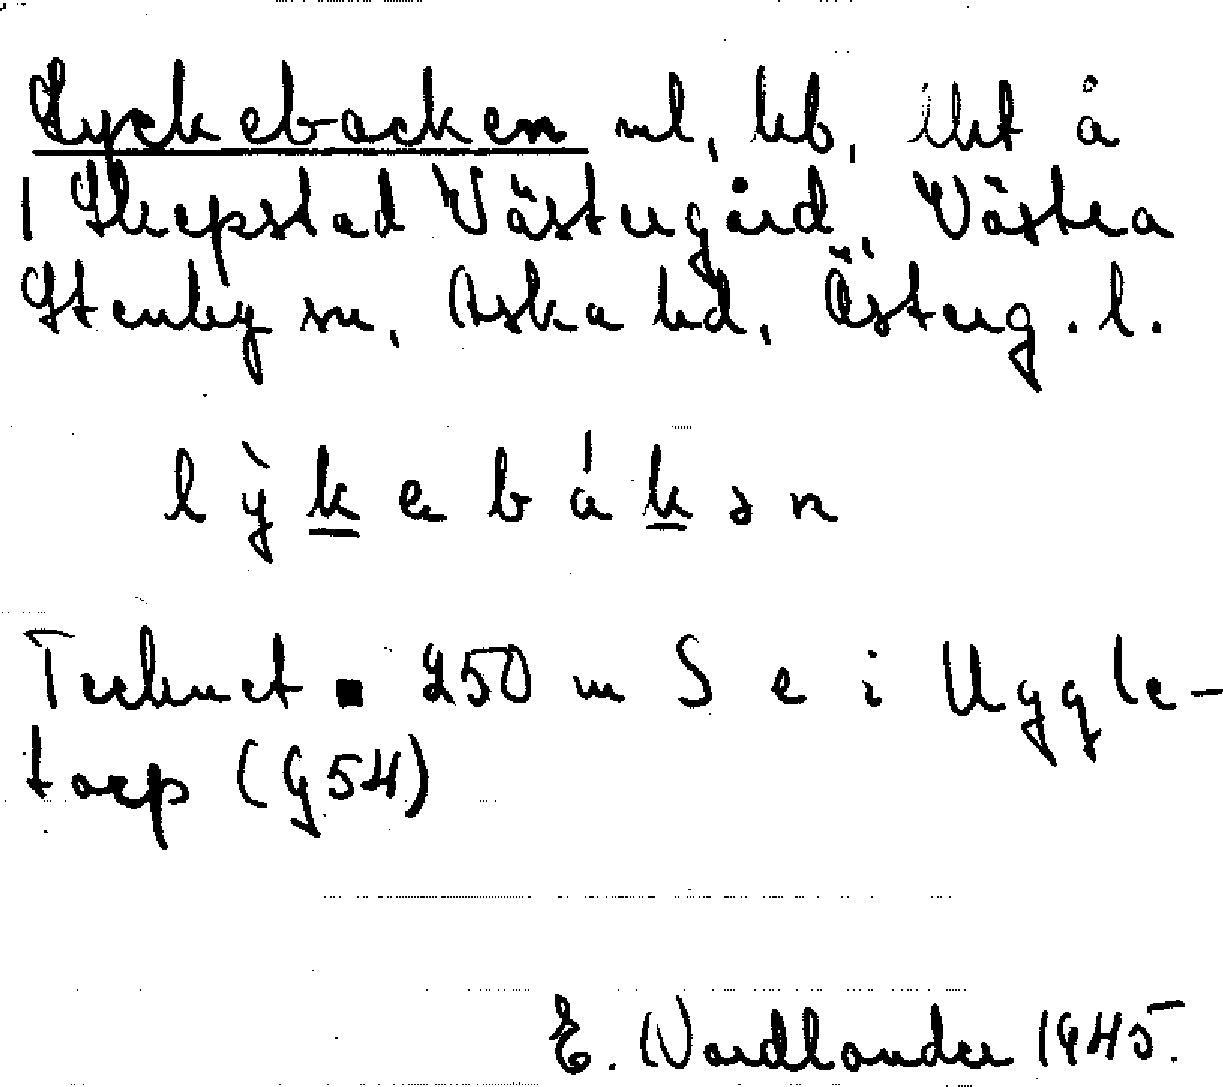 Lyckebacken ml, hb,  å
Skepstad Västergård, Västra
Stenby sn, Aska hd, Österg. l.
lỳkebákən
Tecknet ▪ 250 m S e i Uggle-
torp (g54)
E. Nordlander 1945.